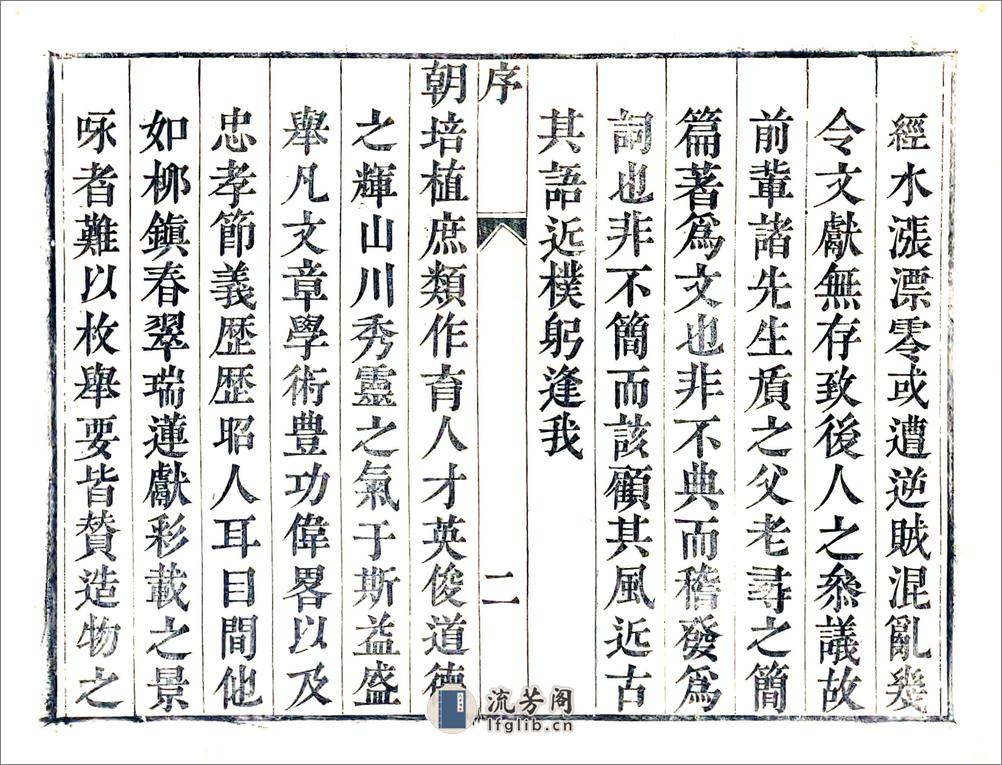 經水漲漂零或遭逆賊混亂幾
令文獻無存致後人之叅議故
前輩諸先生質之父老尋之簡
篇著爲文也非不典而稽發爲
詞也非不簡而該顧其風近古
其語近樸躬逢我
序
二
朝培植庶類作育人才英俊道德
之輝山川秀靈之氣于斯益盛
舉凡文章學術豊功偉畧以及
忠孝節義歷歷昭人耳目間他
如栁鎮春翠瑞蓮獻彩載之景
咏者難以枚舉要皆贊造物之
流芳阁
lfglib.cn